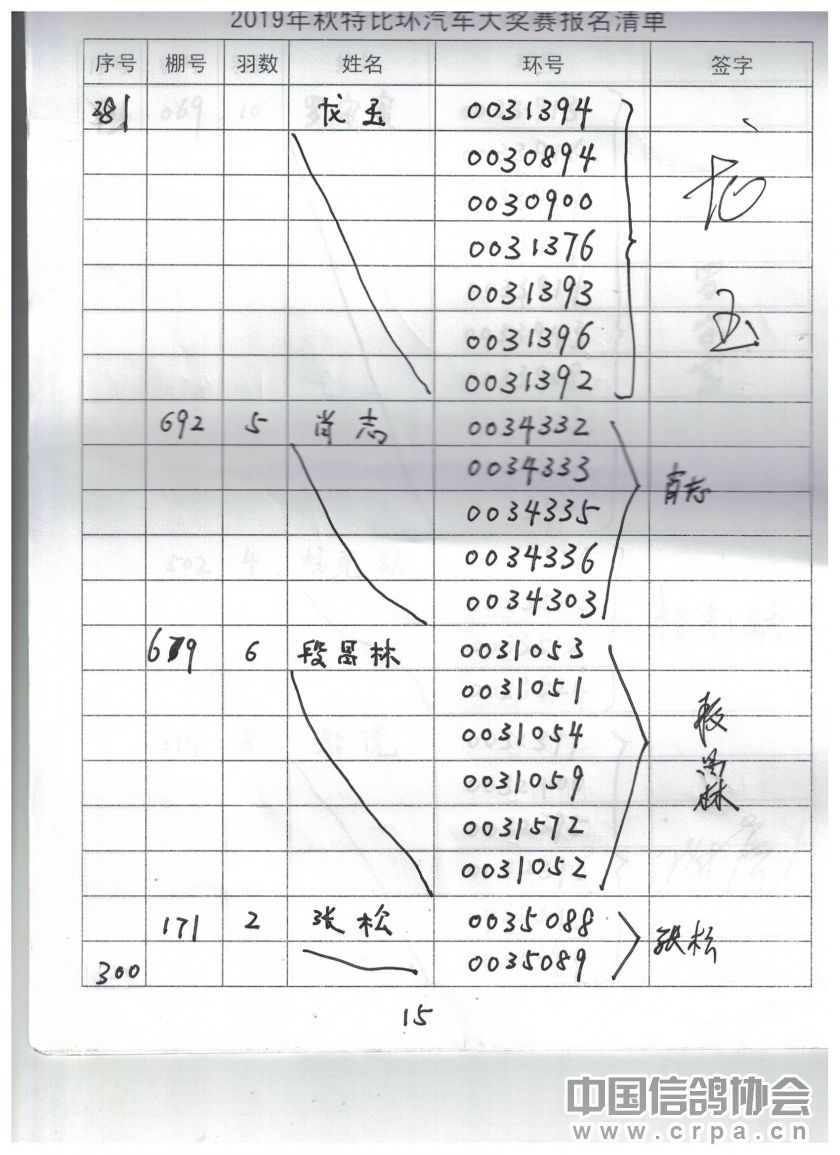 2019年秋特比环汽车大奖赛报名清单
序号 棚号 羽数 姓名 环号 签字
281 龙玉 0031394 龙玉
0030894
0030900
0031376
0031393
0031396
0031392
692 5 肖志 0034332 肖志
0034333
0034335
0034336
0034303
679 6 段昌林 0031053 段昌林
0031051
0031054
0031059
0031572
0031052
171 2 张松 0035088 张松
300 0035089
15
中国信鸽协会
www.crpa.cn